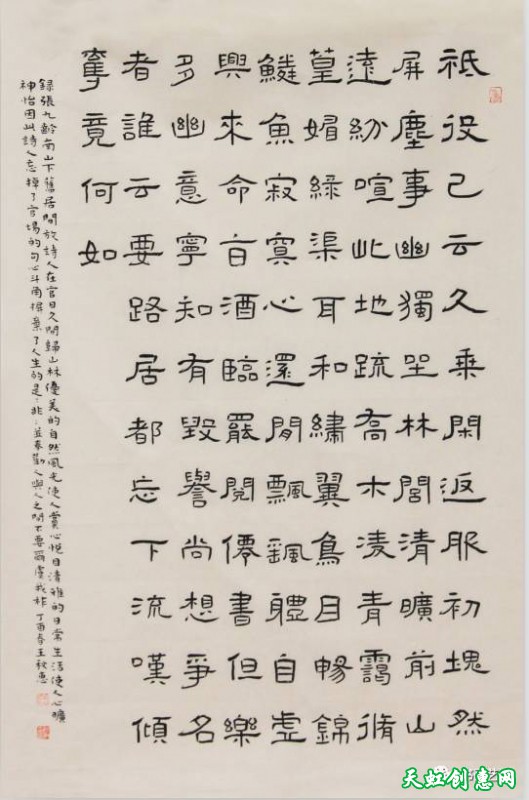 祗役已云久乘閑返服初塊然
屏塵事幽獨坐林閭清曠前山
遠紛喧此地疏喬木淩青靄脩
篁媚綠渠耳和繡翼鳥目暢錦
鱗魚寂寞心還閒飄颻體自虛
興來命旨酒臨罷閱僊書但樂
多幽意寧知有毀譽尚想爭名
者誰云要路居都忘下流嘆傾
奪竟何如
錄張九齡南山下舊居閒放詩人在官日久閒歸山林優美的自然風光使人賞心悅目清雅的日常生活使人心曠
神怡因此詩人忘掉了官場的勾心斗角摒棄了人生的是:非:並奉勸人與人之間不要爾虞我詐 丁酉春王秋惠
天虹创意网